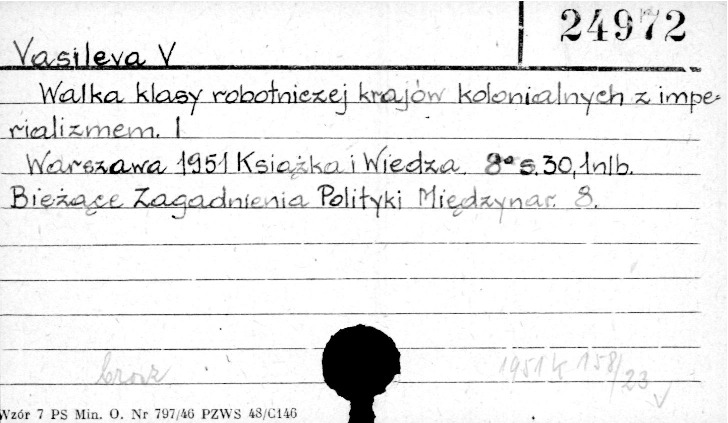 24972
Vasileva V
Walka klasy robotniczej krajów kolonialnych z impe-
rializmem. I
Warszawa 1951 Książka i Wiedza. 8° s. 30, 1nlb.
Bieżące Zagadnienia Polityki Międzynar. 8.
1951 K 158/23
Wzór 7 PS Min. O. Nr 797/46 PZWS 48/C146